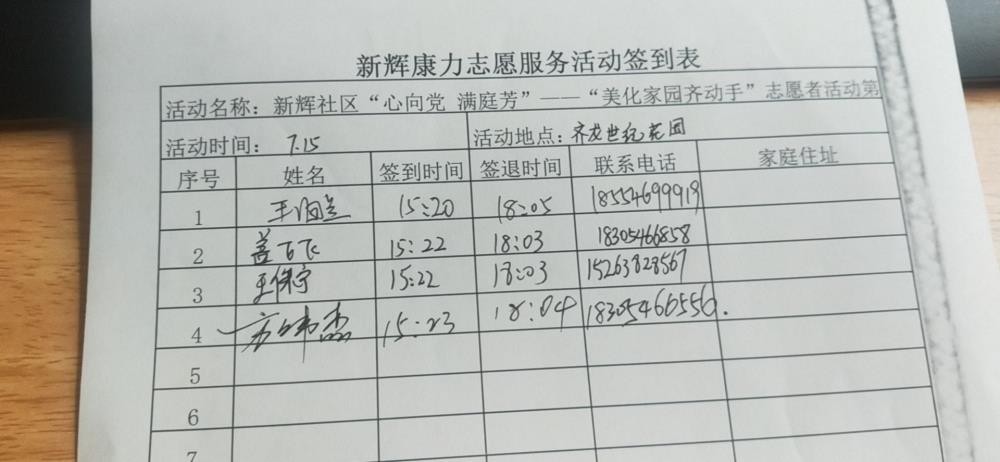 新辉康力志愿服务活动签到表
活动名称：新辉社区“心向党 满庭芳”——“美化家园齐动手”志愿者活动第
活动时间： 7.15 活动地点：齐龙世纪花园
序号 姓名 签到时间 签退时间 联系电话 家庭住址
1 15:20 18:05 18554699919
2 15:22 18:03 18305466858
3 王保宁 15:22 18:03 15263828567
4 15:23 18:04 18305466556.
5
6
7